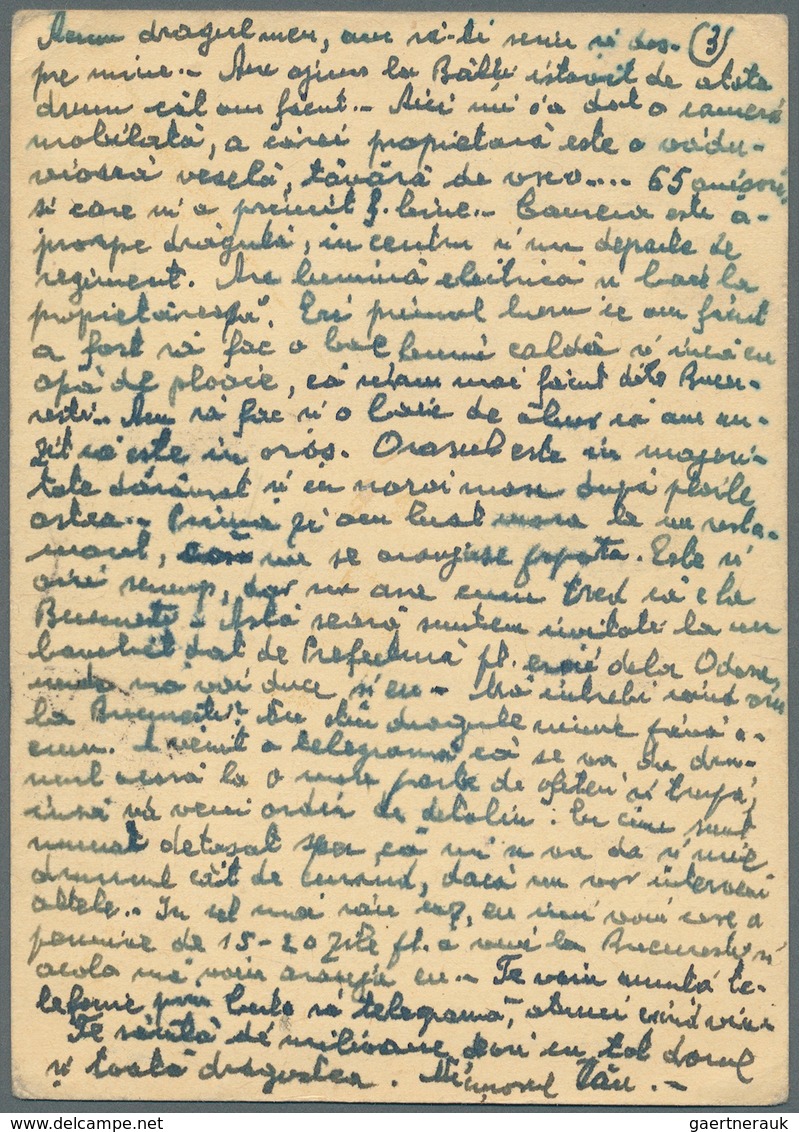 Acum dragul meu, am să-ți scriu și des- (3)
pre mine.- Am ajuns la Bălți istovit de atâta
drum cât am făcut.- Aici mi s'a dat o cameră
mobilată, a cărei propietară este o vădu-
vioară veselă, tânără de vreo.... 65 
și care m'a primit f. bine.- Camera este a-
proape drăguță, în centru și nu departe de
regiment. Are lumină electrică și baie la
propietăreasă. Cel primul lucru ce am făcut
a fost să fac o bae bună caldă și încă cu
apă de ploaie, că n'am mai făcut dela Bucu-
rești.- Am să fac și o baie de abur că am au-
zit că este în oraș. Orașul este în majori-
tate dărâmat și cu noroi mare după ploile
astea.- Prima zi am luat masa la un resta-
urant, nu se aranjase popota. Este și
aici scump, dar nu așa cum cred că e la
București.- Astă seară suntem invitați la un
banchet dat de Prefectură pt. eroii dela Odesa,
unde mă voi duce și eu.- Mă întrebi când viu
la București? Nu știu dragule nimic până a-
cum. A venit o telegramă că se va da dru-
mul acasă la o mare parte de ofițeri și trupă,
însă va veni ordin de detaliu. Eu cum sunt
numai detașat sper că mi se va da și mie
drumul cât de curând, dacă nu vor interveni
altele.- In cel mai rău caz, eu îmi voi cere o
permisie de 15-20 zile pt. a veni la București și
acolo mă voi aranja eu.- Te voiu anunța te-
lefonic sau telegramă, atunci când viu
Te sărută de milioane ori cu tot dorul
și toată dragostea. Nicușorul Tău.-
gaertnerauk